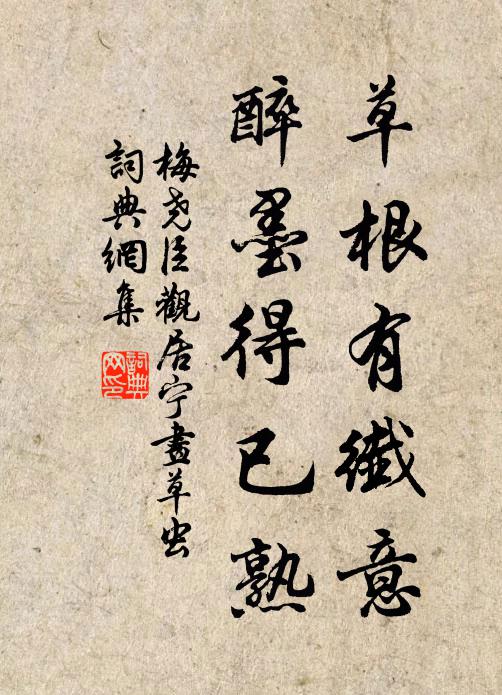 草根有纖意
醉墨得已熟
梅尧臣觀居宁畫草虫
詞典網集
詞典
网印